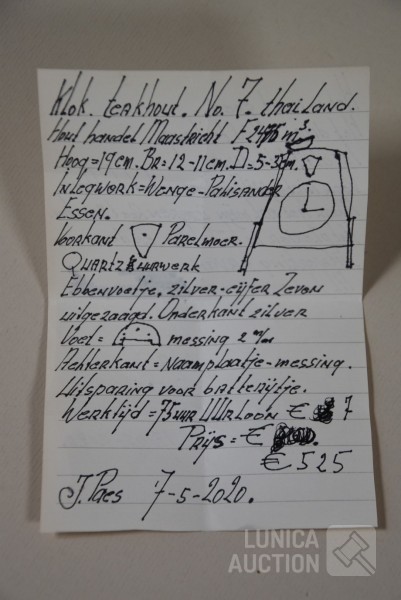 Klok. teakhout. No. 7. thailand.
Hout handel Maastricht F 2475 m³.
Hoog=19cm. Br=12-11cm. D=5-3cm.
Inlegwerk=Wenge-Palisander
Essen.
Voorkant Parelmoer.
Quartz uurwerk
Ebbenvoetje, zilver-cijfer Zeven
uitgezaagd. Onderkant zilver
Voet= messing 2 m/m
Achterkant=Naamplaatje-messing.
Uitsparing voor batterijtje.
Werktijd=75uur UUrloon € 7
Prijs=€
€ 525
J. Paes 7-5-2020.
LUNICA
AUCTION